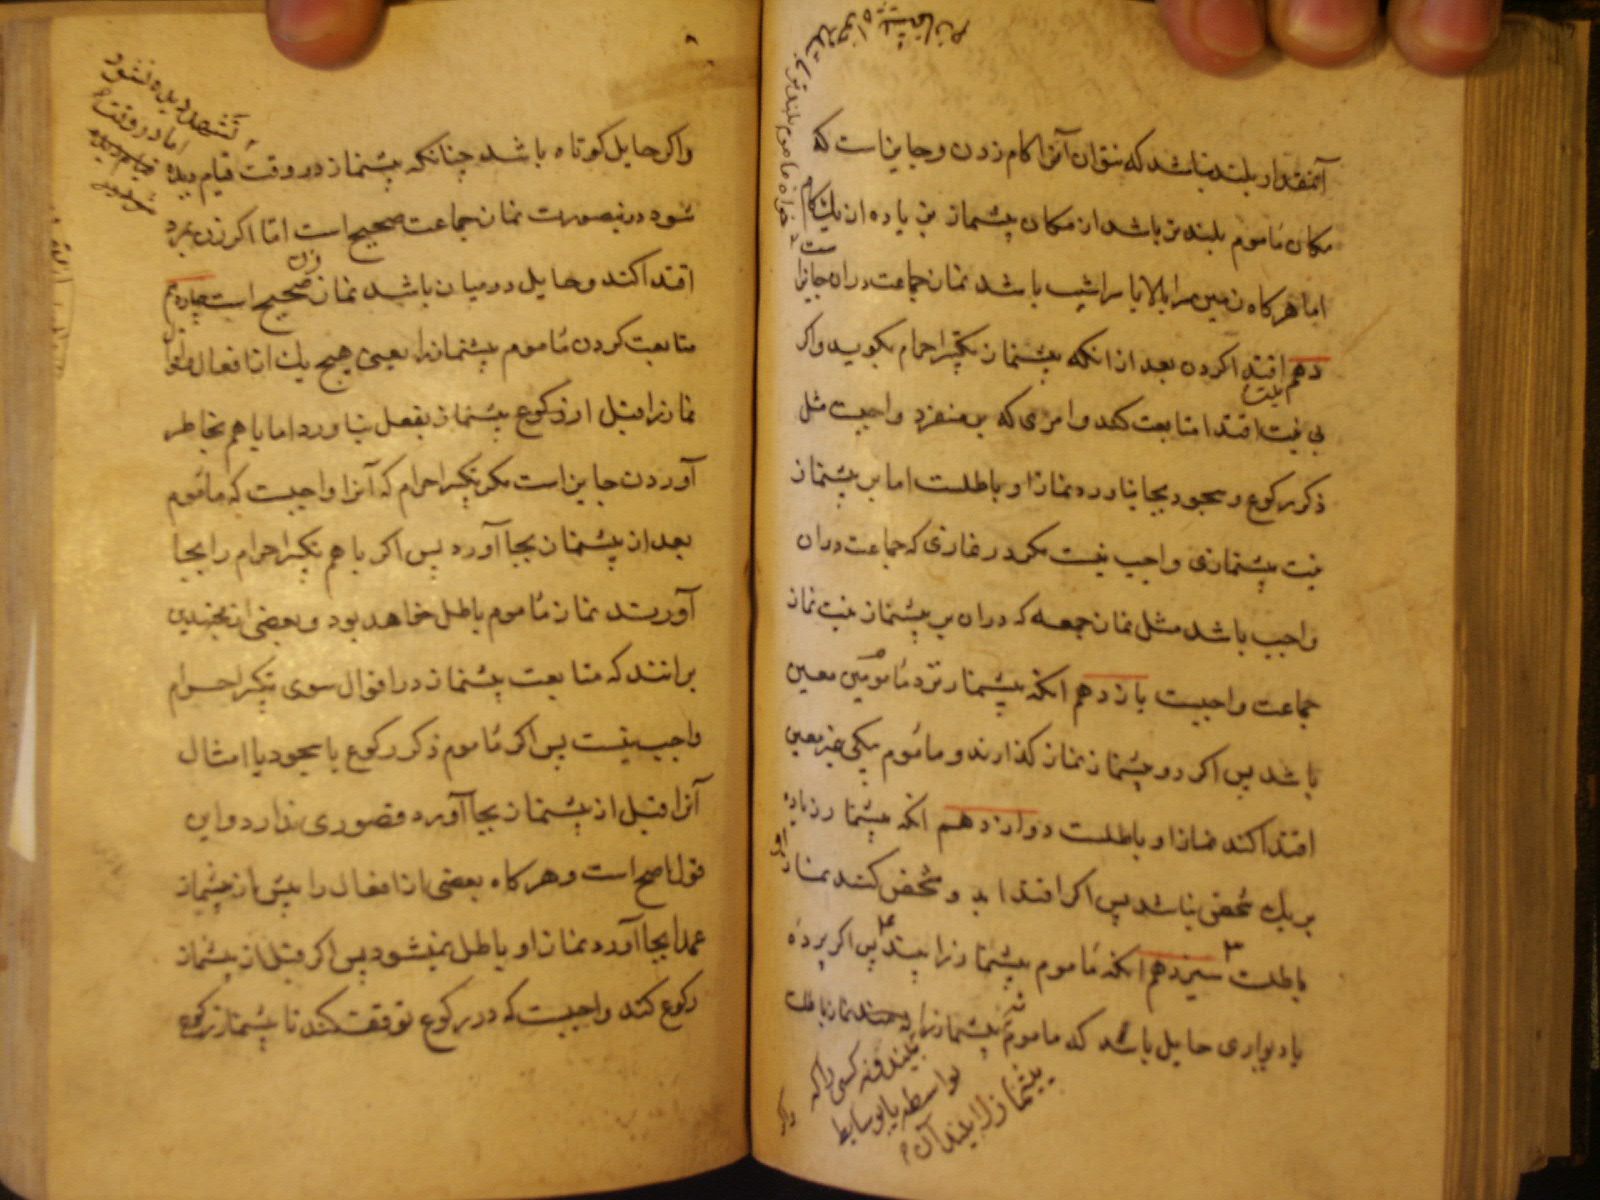 آنمقدار بلند نباشد که نتوان آنرا کام زدن و جایز است که
مکان مأموم بلندتر باشد از مکان پیشنماز بزیاده از یک کام
اما هرگاه زمین سرابالا یا سراشیب باشد نماز جماعت دران جایز
دهم اقتدا کردن بعد از انکه پیشنماز تکبیر احرام بکوید واکر
بی نیت اقتدا متابعت کند وامری که بر منفرد واجبست مثل
ذکر رکوع و سجود بجا نیاورد نماز او باطلست اما بر پیشنماز
نیت پیشنمازی واجب نیست مکر در نمازی که جماعت دران
واجب باشد مثل نماز جمعه که دران بر پیشنماز نیت نماز
جماعت واجبست یازدهم انکه پیشنماز نزد مأمومین معین
باشد پس اکر دو پیشنماز نماز کذارند و مأموم بیکی غیر معین
اقتدا کند نماز او باطلست دوازدهم انکه پیشنماز زیاده
بر یک شخص نباشد پس اکر اقتدا بدو شخص کنند نماز
باطلست سیزدهم انکه مأموم پیشنماز را بیند پس اکر پرده
یا دیواری حایل باشد که مأموم پیشنماز را نبیند نماز باطلست
بیند فنه کسی را که
بواسطه یا بوسایط
پیشنماز را بیند آن
واکر
تشهد دیده نشود
اما در وقت
قیام دیده
شود
واکر حایل کوتاه باشد چنانکه پیشنماز در وقت قیام دیده
شود درینصورت نماز جماعت صحیح است امّا اکر زن بمرد
اقتدا کند و حایل در میان باشد نماز زن صحیح است چهاردهم
متابعت کردن مأموم پیشنماز را یعنی هیچ یک از افعال
نماز را قبل از رکوع پیشنماز بفعل نیاورد اما با هم بخاطر
آوردن جایز است مکر تکبیر احرام که آنرا واجبست که مأموم
بعد از پیشنماز بجا آورد پس اکر با هم تکبیر احرام را بجا
آورند نماز مأموم باطل خواهد بود و بعضی از مجتهدین
برانند که متابعت پیشنماز در اقوال سوی تکبیر احرام
واجب نیست پس اکر مأموم ذکر رکوع یا سجود یا امثال
آنرا قبل از پیشنماز بجا آورد قصوری ندارد و این
قول اصح است و هرکاه بعضی از افعال را پیش از پیشنماز
عمدا بجا آورد نماز او باطل نمیشود پس اکر قبل از پیشنماز
رکوع کند واجبست که در رکوع توقف کند تا پیشنماز برکوع